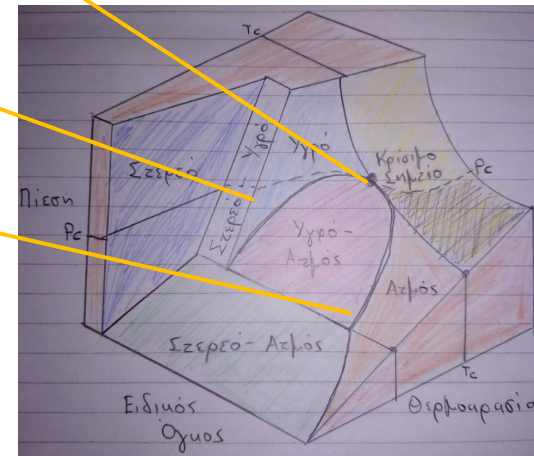 Tc
Στερεό
Στερεό-
Υγρό
Υγρό
Κρίσιμο
Σημείο
Pc
Πίεση
Pc
Υγρό-
Ατμός
Ατμός
Στερεό-Ατμός
Tc
Ειδικός
Όγκος
Θερμοκρασία